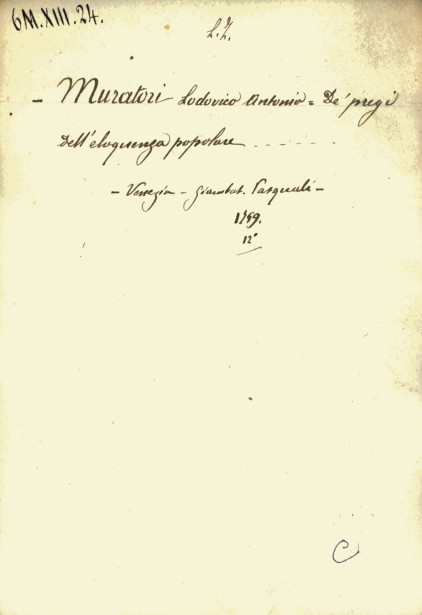 6M.XIII.24.
L.Z.
- Muratori Lodovico Antonio = De' pregi
dell'eloquenza popolare - - - - - -
- Venezia - Giambat. Pasquali -
1759.
12°
C